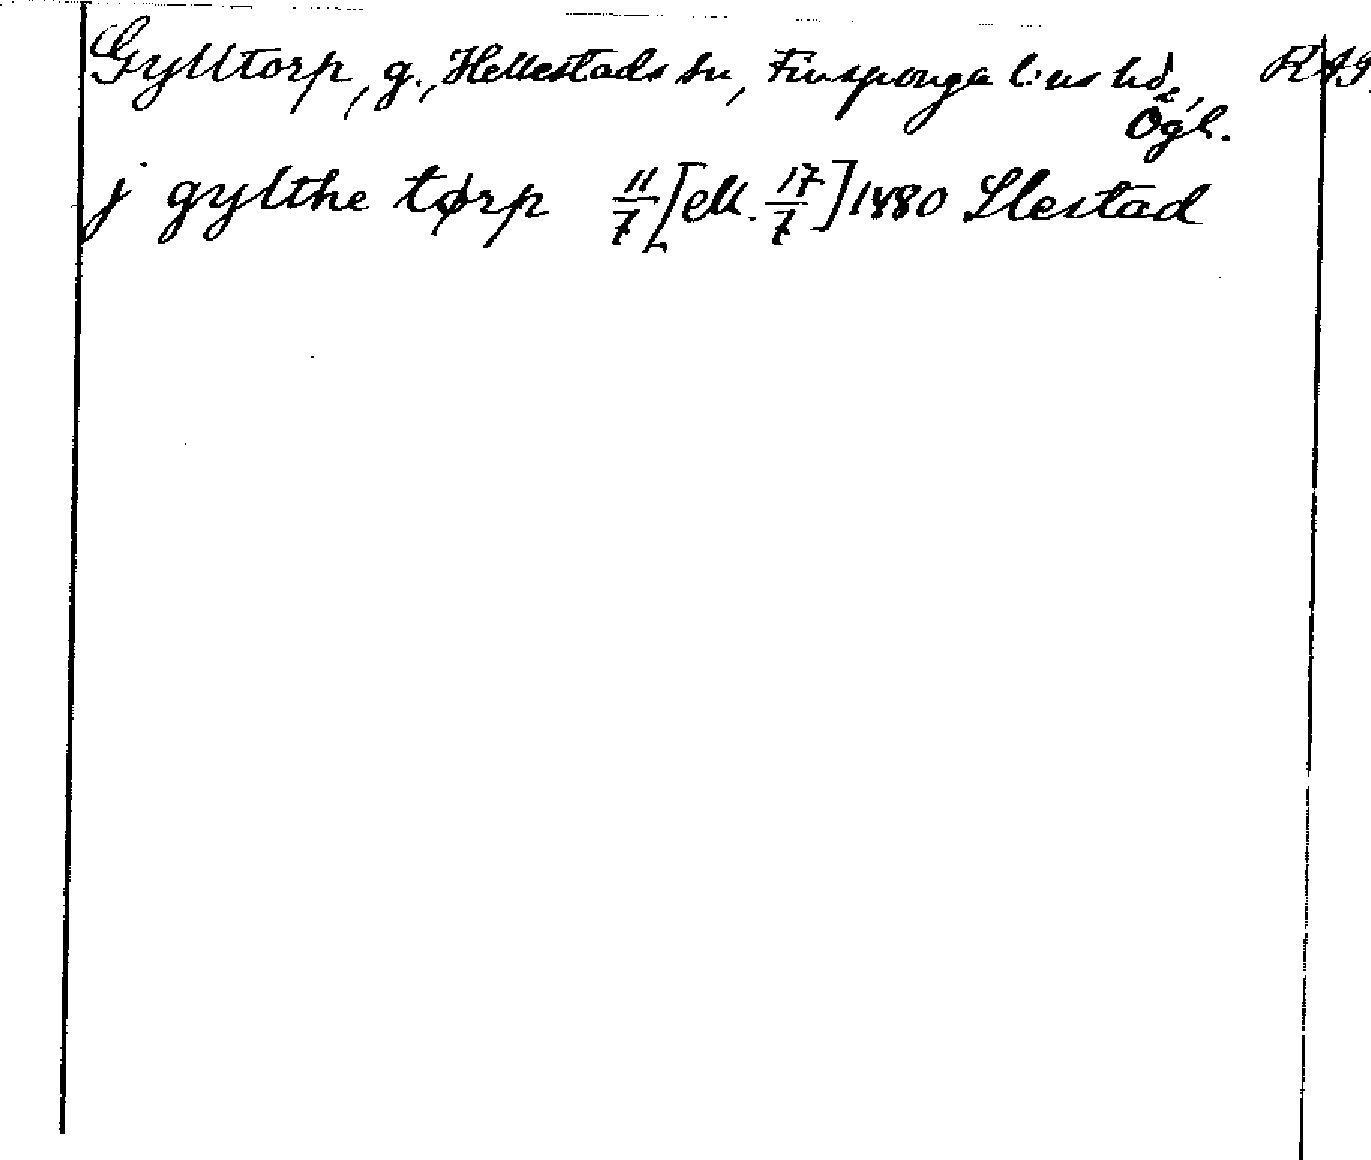 Gylltorp, g., Hellestads sn, Finsponga l:ns hd, RAP.
Ögl.
j gylthe tørp 11/7 [ell. 17/7] 1480 Slestad